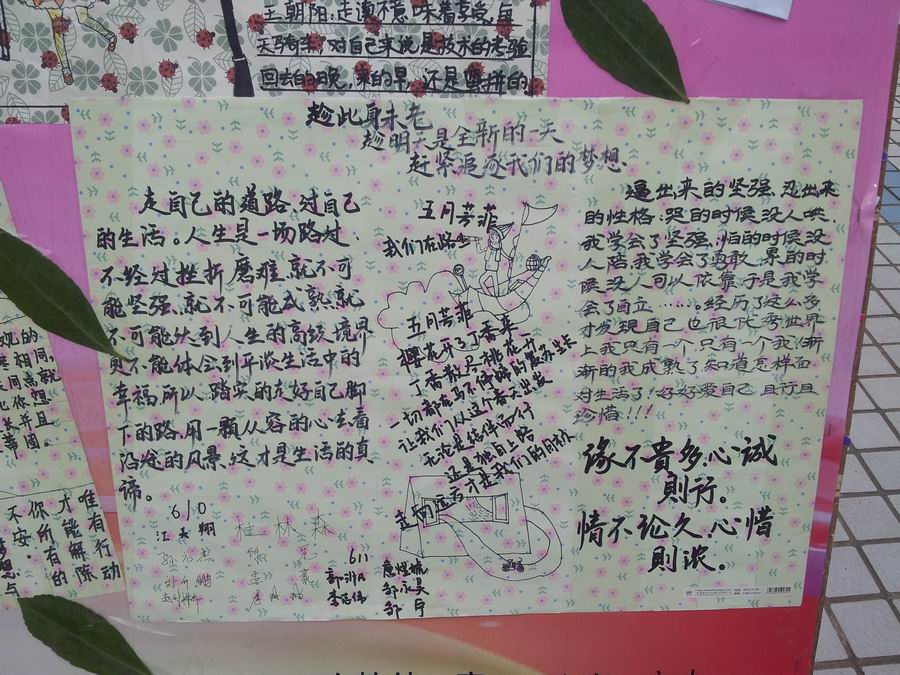 王朝阳:走遍不意味着享受,每
天骑车,对自己来说是技术的考验
回去的晚,来的早,还是蛮拼的
趁此身未老
趁明天是全新的一天
赶紧追逐我们的梦想.
走自己的道路、过自己
的生活。人生是一场路过,
不经过挫折磨难,就不可
能坚强、就不可能成熟、就
不可能达到人生的高级境界
更不能体会到平淡生活中的
幸福,所以,踏实的走好自己脚
下的路,用一颗从容的心去看
沿途的风景,这才是生活的真
谛。
610
江天翔
桂林森
五月芳菲
我们在路上
五月芳菲
樱花开了丁香来
丁香散尽桃花开
一切都在马不停蹄的
让我们从这个春天出发
无论是结伴而行
还是独自上路
走向远方才是我们的
611
李志伟
邹永昊
邹丹
逼出来的坚强,忍出来
的性格,哭的时候没人哄,
我学会了坚强,怕的时候没
人陪,我学会了勇敢,累的时
候没人可以依靠于是我学
会了自立……。经历了这么多
才发现自己也很优秀世界
上我只有一个只有一个我!渐
渐的我成熟了知道怎样面
对生活了!好好爱自己且行且
珍惜!!!
缘不贵多,心诚
則行.
情不论久,心惜
則浓.
唯有行动
才能解除
你所有的
不安.